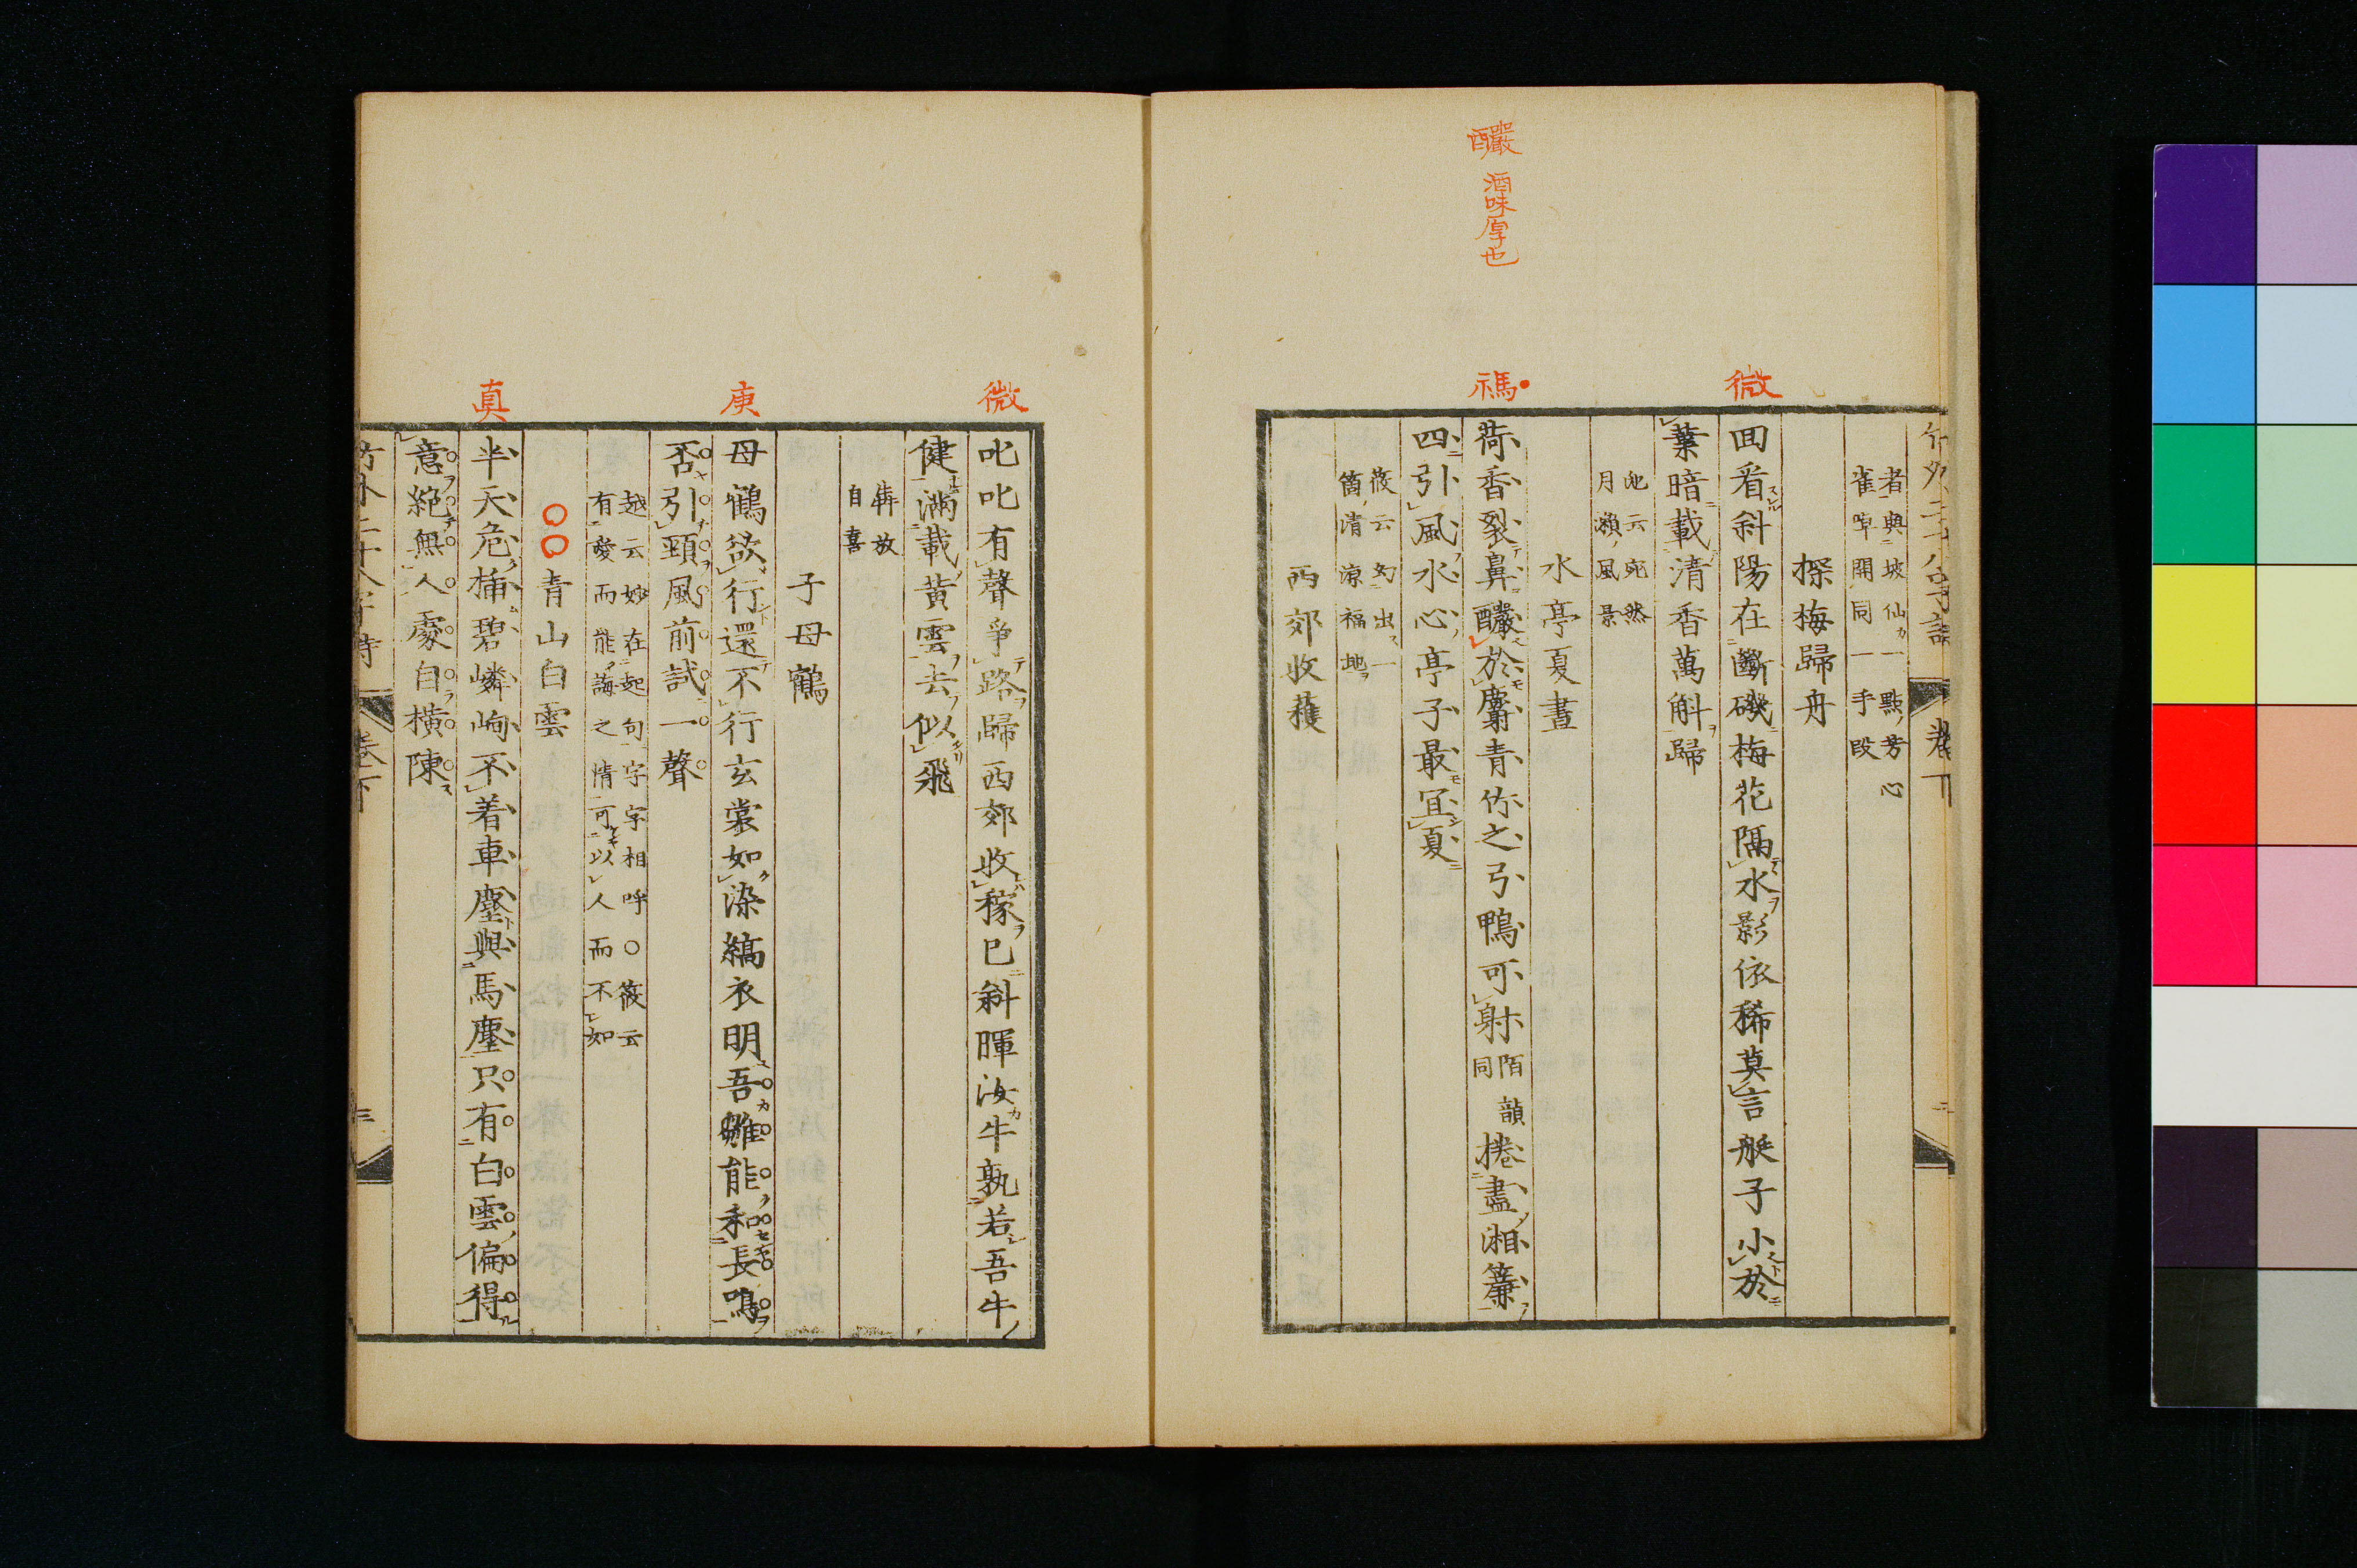 釅 酒味厚也
者與坡仙一點芳心
雀啅開同一手段
探梅歸舟
微
回看斜陽在斷磯梅花隔水影依稀莫言艇子小於
葉暗載清香萬斛歸
也云宛然
月瀨風景
水亭夏晝
禡
荷香裂鼻釅於麝青你之弓鴨可射陌韻同捲盡湘簾
四引風水心亭子最宜夏
筱云幻出一
箇清涼福地
西郊收穫
微
叱叱有聲爭路歸西郊收稼已斜暉汝牛孰若吾牛
健滿載黃雲去似飛
犇放
自喜
子母鶴
庚
母鶴欲行還不行玄裳如染縞衣明吾雛能和長鳴
否引頸風前試一聲
越云妙在起句字字相呼○筱云
有愛而能誨之情可以人而不如
○○青山白雲
真
半天危插碧嶙峋不着車塵與馬塵只有白雲偏得
意絕無人處自橫陳
卷下
三